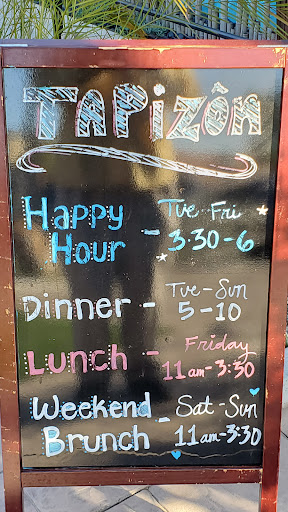 TaPizôn
Happy Tue-Fri
Hour - 3-30-6
Dinner - Tue-Sun
5-10
Lunch - Friday
11am-3:30
Weekend Sat-Sun
Brunch - 11am-3:30